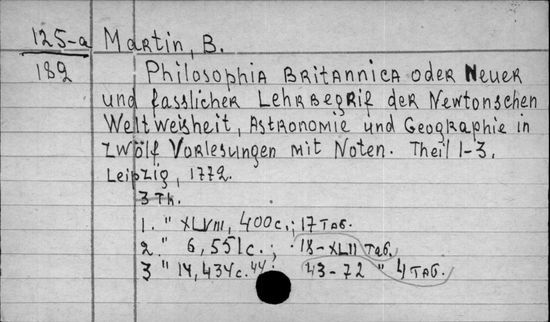 125-a Martin, B.
182 Philosophia Britannica oder Neuer
und fasslicher Lehrbegrif der Newtonschen
Weltweisheit, Astronomie und Geographie in
zwölf Vorlesungen mit Noten. Theil 1-3.
Leipzig, 1772.
3 Th.
1. " XLVIII, 400c.; 17 Таб.
2. " 6, 551c.; 18-XLII Таб.
3 " 14, 434c. 43-72 " 4 Таб.